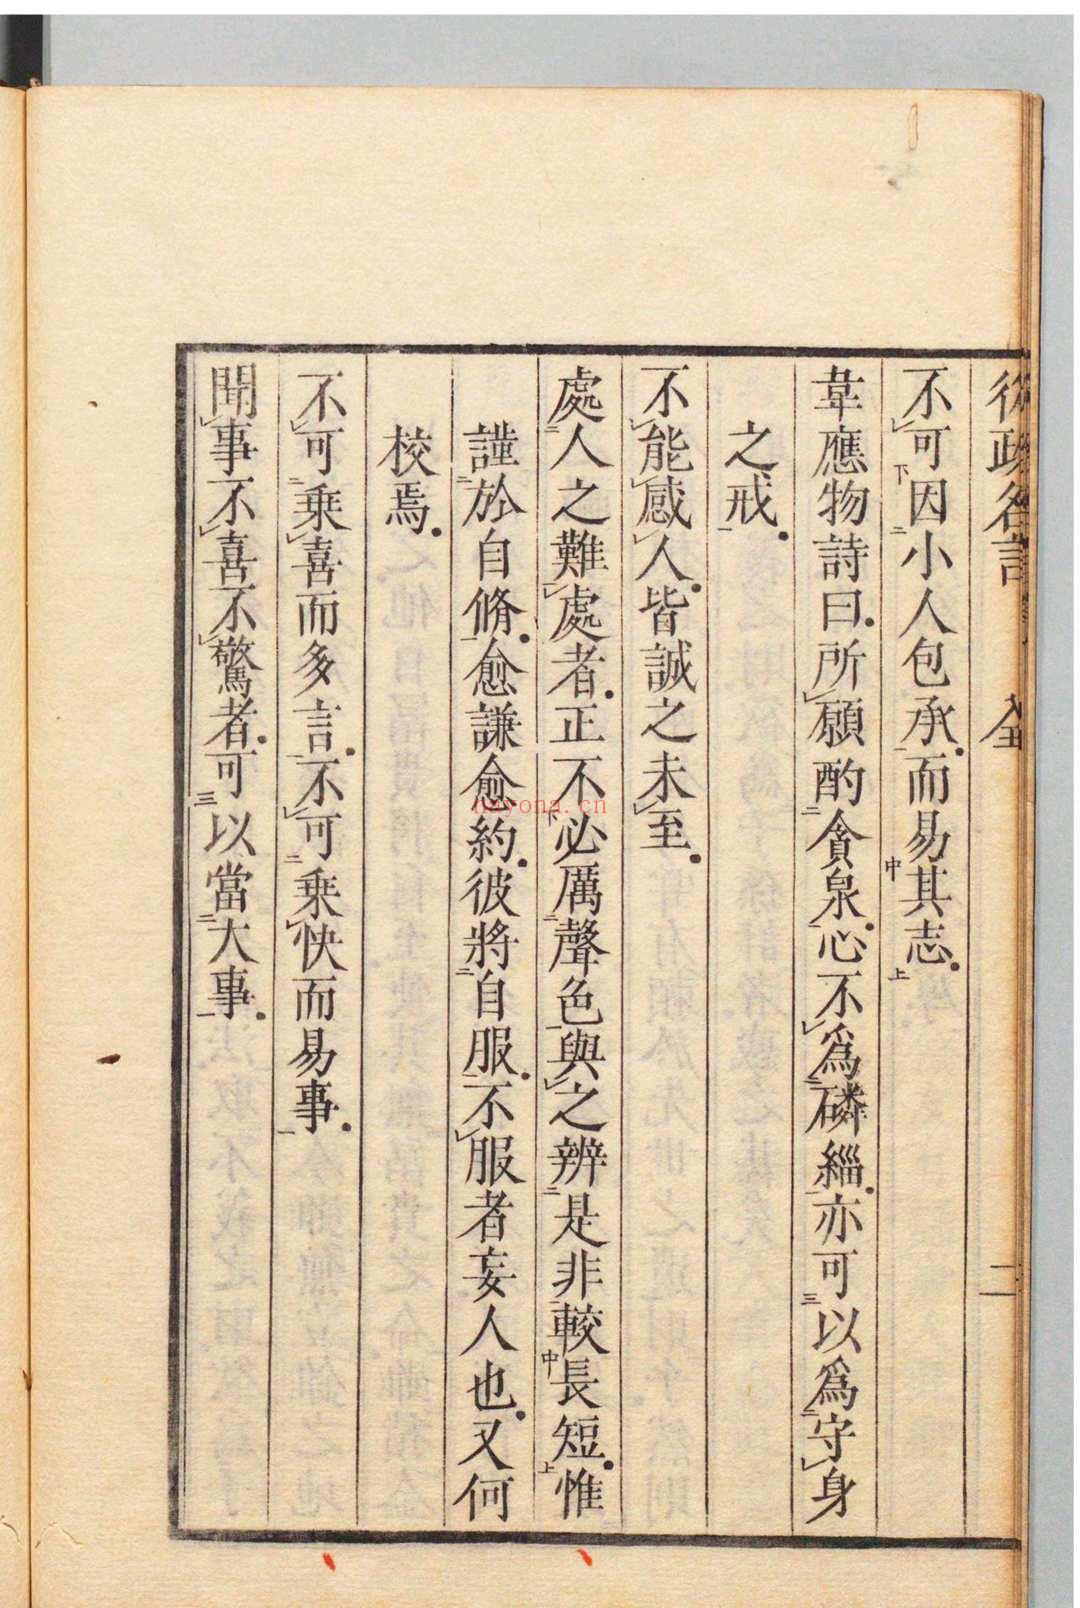 從政名言 全 二
不可因小人包承而易其志
韋應物詩曰所願酌貪泉心不爲磷緇亦可以爲守身
之戒
不能感人皆誠之未至
處人之難處者正不必厲聲色與之辨是非較長短惟
謹於自脩愈謙愈約彼將自服不服者妄人也又何
校焉
不可乘喜而多言不可乘快而易事
聞事不喜不驚者可以當大事
nayona.cn